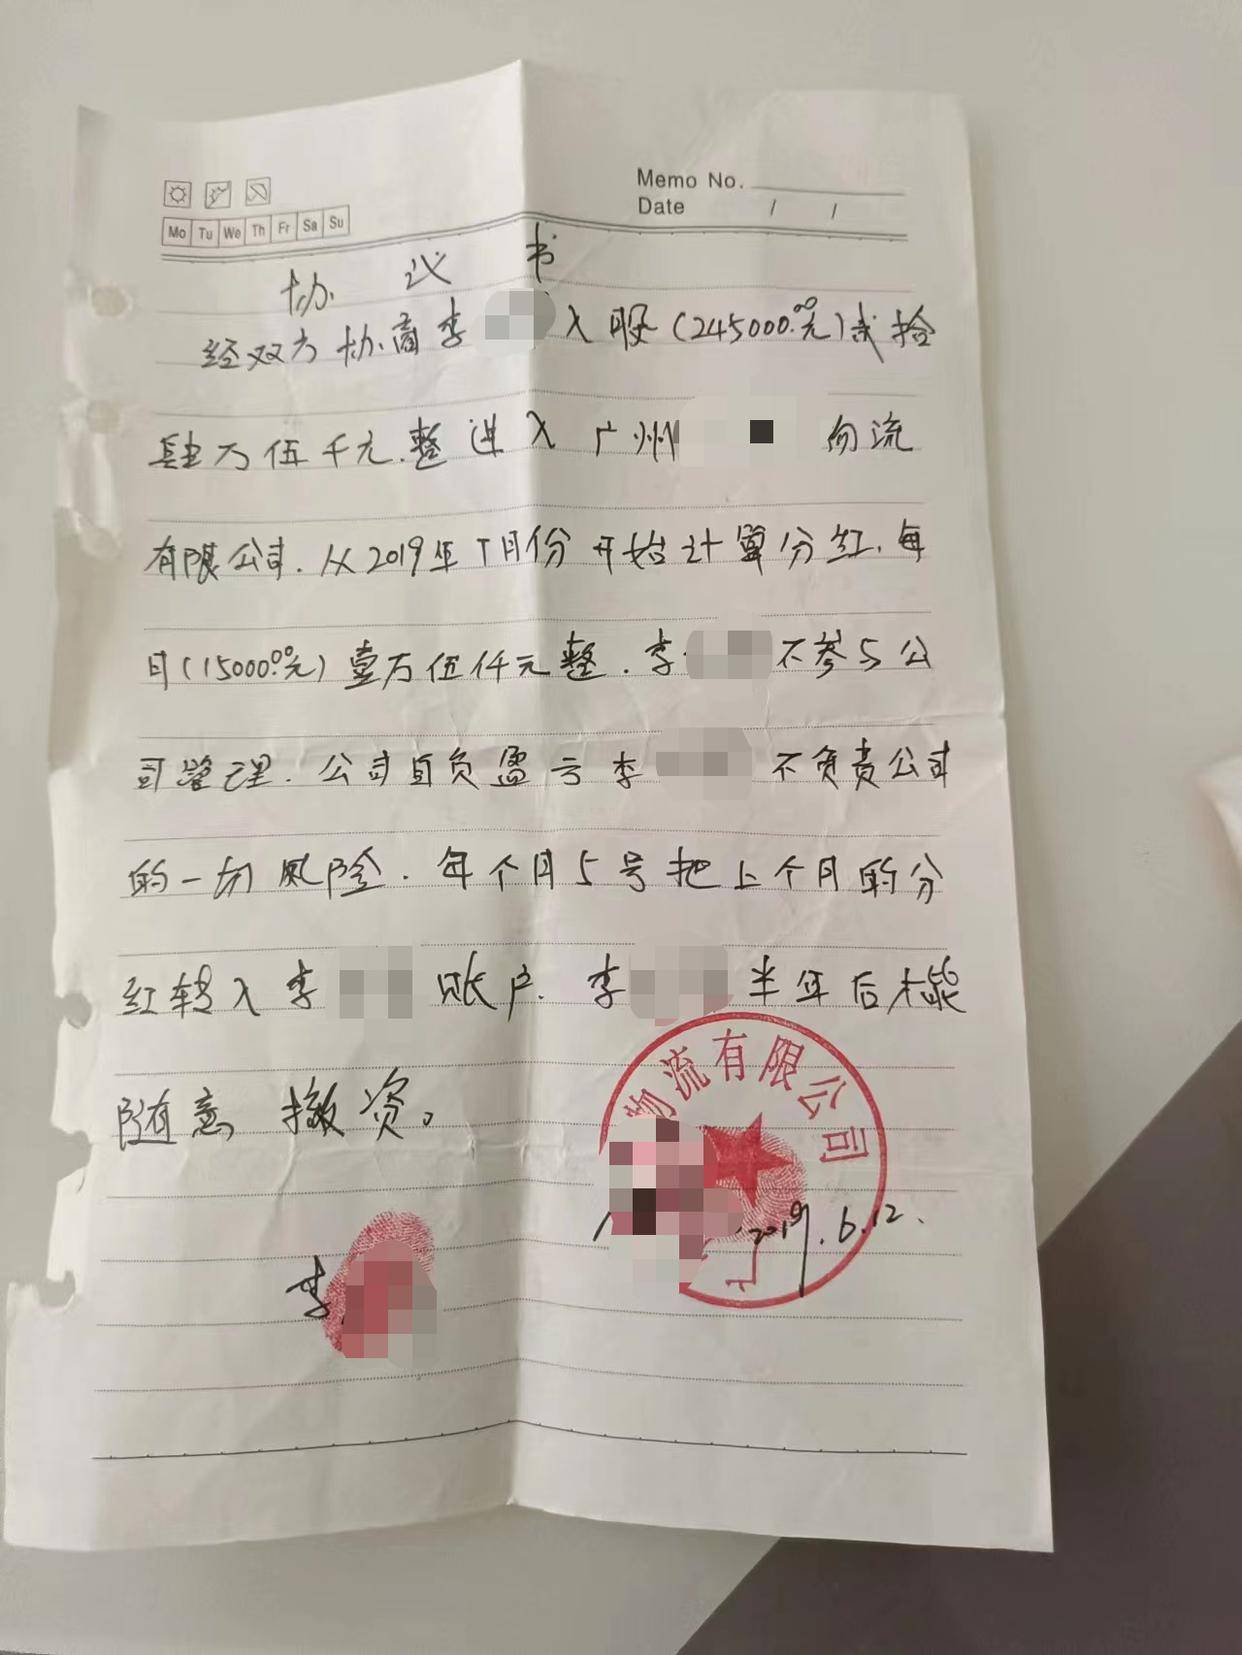 Memo No.
Date / /
Mo Tu We Th Fr Sa Su
协议书
经双方协商李 入股(245000.00元)贰拾
肆万伍千元.整进入广州 物流
有限公司.从2019年7月份开始计算分红,每
月(15000.00元)壹万伍仟元整.李 不参与公
司管理.公司自负盈亏李 不负责公司
的一切风险.每个月5号把上个月的分
红转入李 账户.李 半年后才能
随意撤资。
物流有限公司
2019.6.12.
李